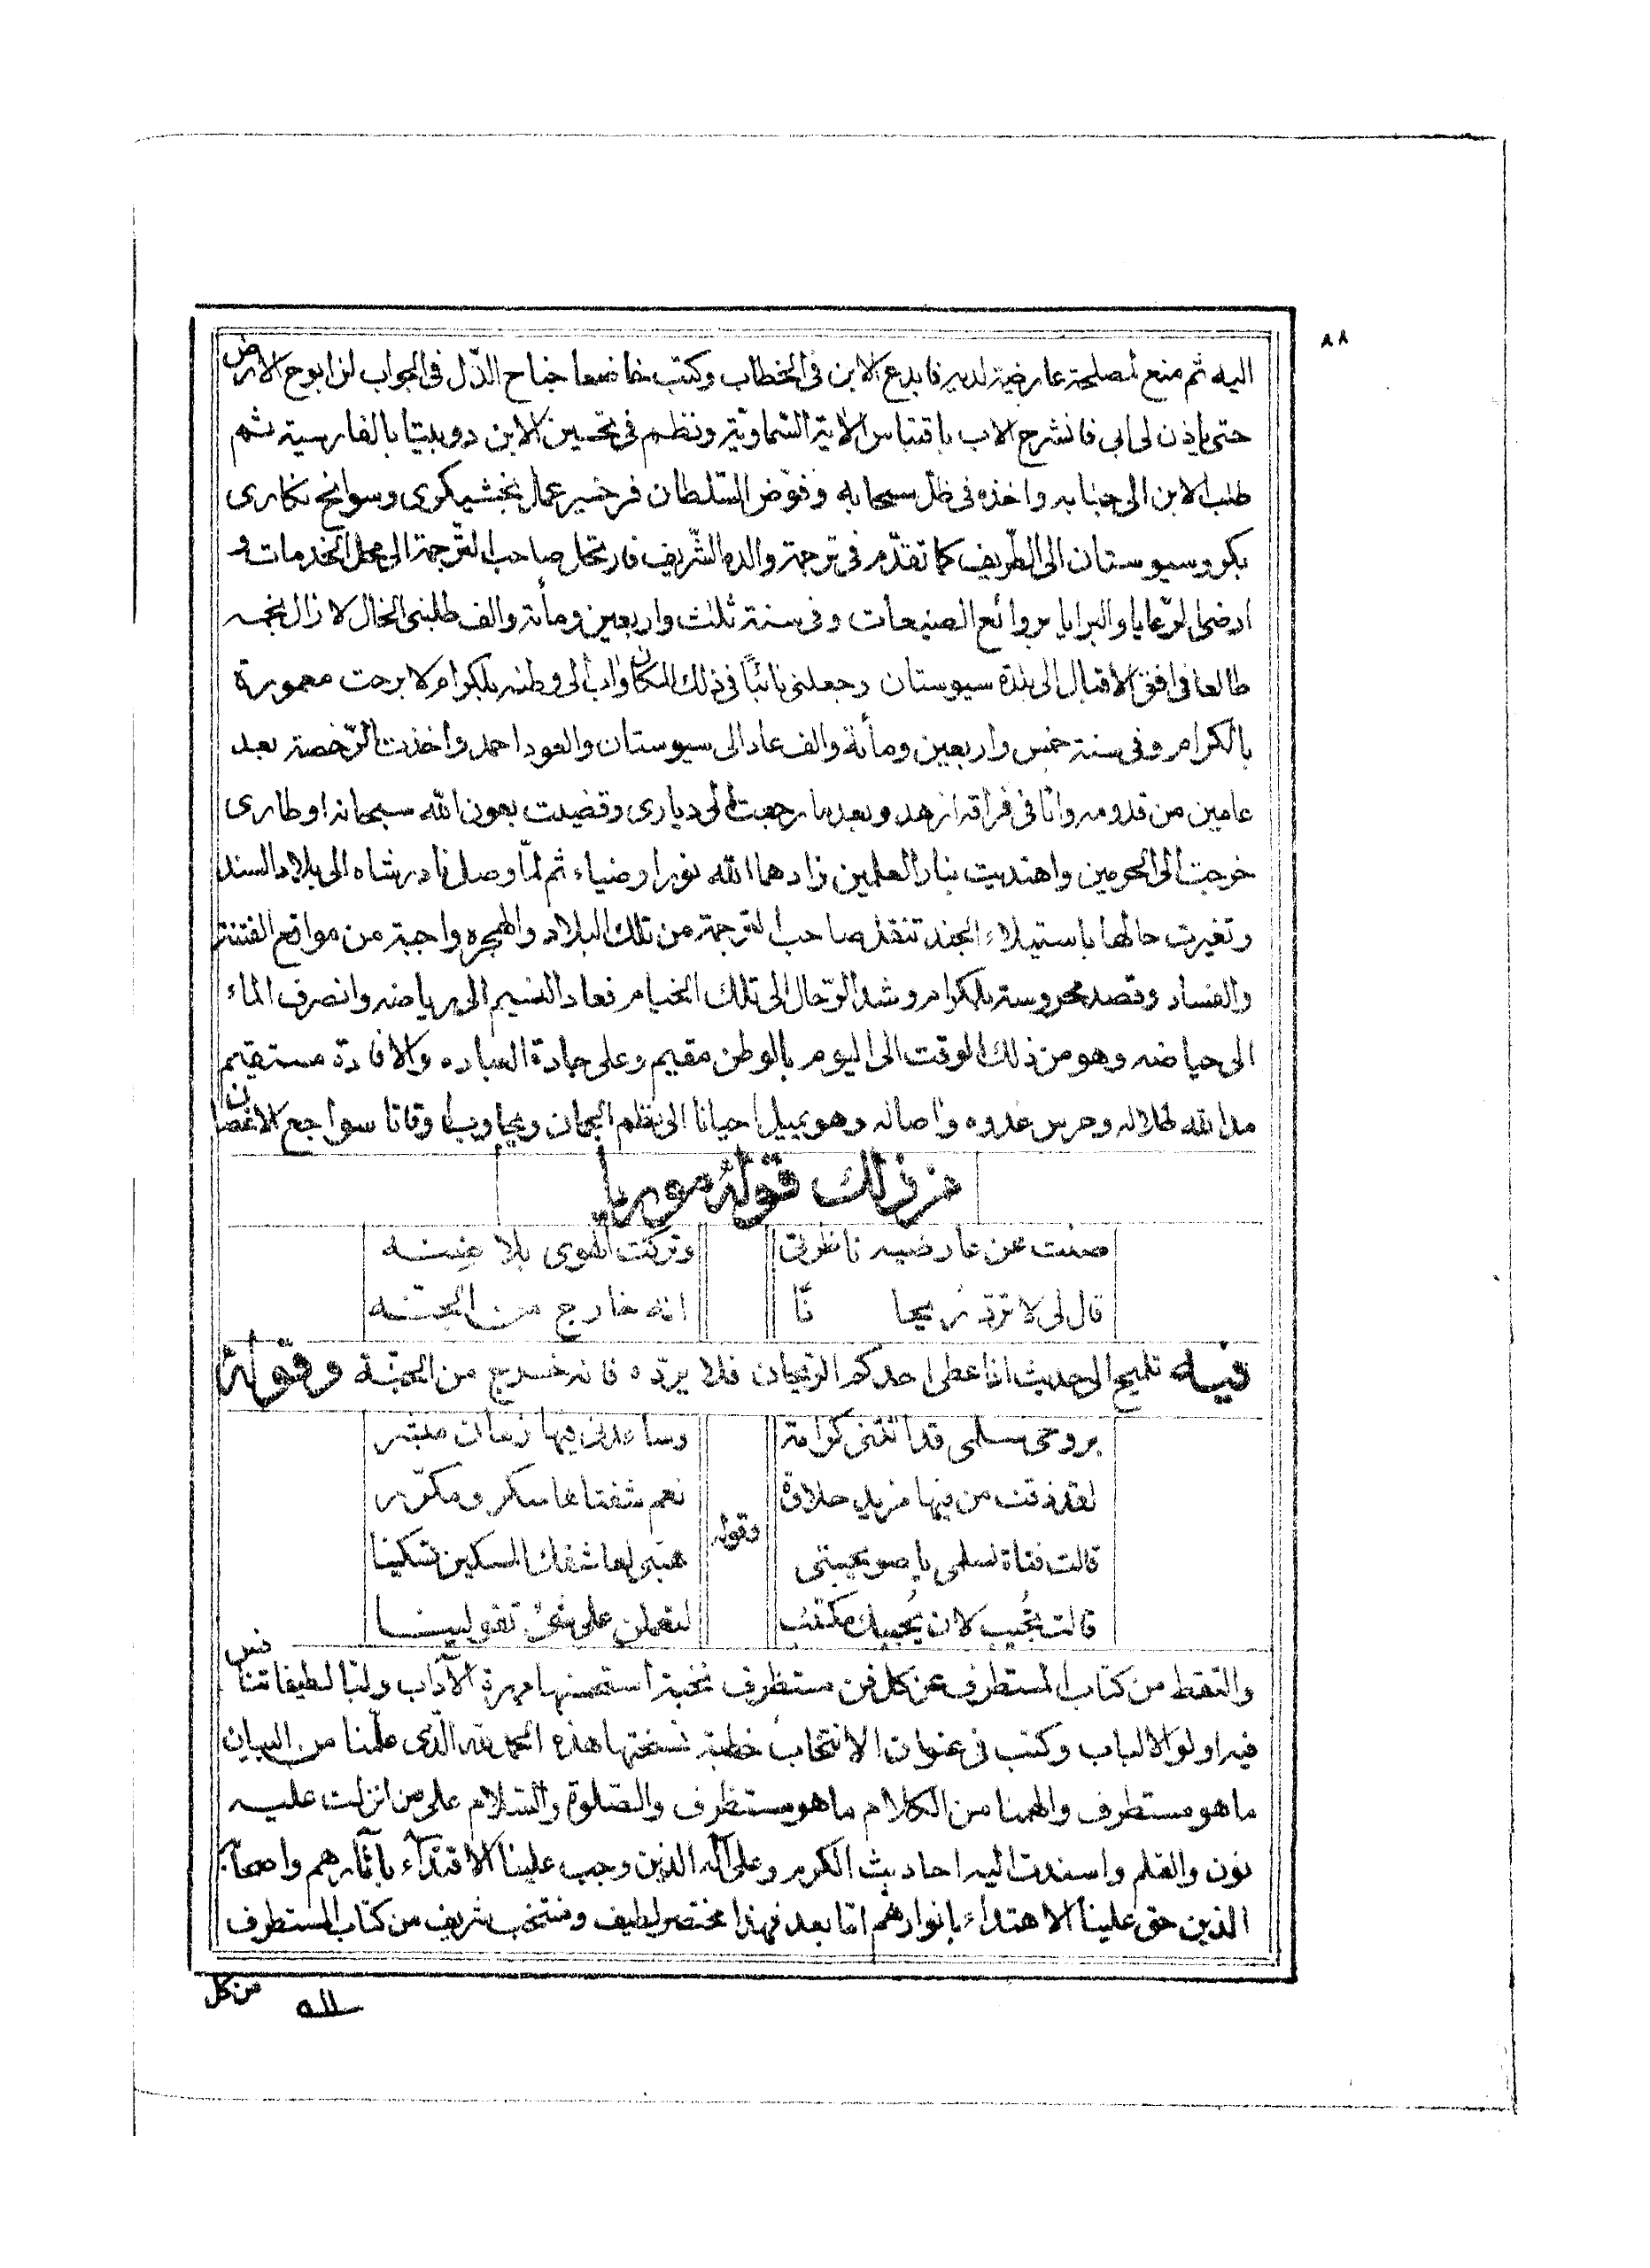 ٨٨
اليه ثم منع لمصلحة عارضية لديه فابدع الابن فى الخطاب وكتب خافضعا جناح الذّل فى الجواب لن ابرح الارض
حتى ياذن لى ابى فانشرح الاب باقتباس الاية السّماويّة ونظم فى تحسين الابن دوبيتا بالفارسية ثم
طلب الابن الى جنابه واخذه فى ظل سحابه وفوّض السّلطان فرخسير عمل بخشيكرى وسوانح نكارى
بكر وسيوستان الى الطّريف كما تقدّم فى ترجمة والده الشّريف فارتحل صاحب الترجمة الى محل الخدمات و
ارضى الرّعايا والبرايا بروائع الصنيعات وفى سنة ثلث واربعين ومأية والف طلبنى الخال لا زال نجمه
طالعا فى افق الاقبال الى بلدة سيوستان وجعلنى نائبًا فى ذلك المكان واب الى وطنه بلكرام لا برحت معمورة
بالكرام وفى سنة خمس واربعين ومأية والف عاد الى سيوستان والعود احمد واخذت الرّخصة بعد
عامين من قدومه وانا فى فراقه ازهد وبعد ما رجعت الى ديارى وقضيت بعون الله سبحانه اوطارى
خرجت الى الحرمين واهتديت بنار العلمين زادهما الله نورا وضياء ثم لمّا وصل نادر شاه الى بلاد السند
وتغيرت حالها باستيلاء الجند تنقل صاحب الترجمة من تلك البلاد والهجره واجبة من مواقع الفتنة
والفساد وقصد محروسة بلكرام وشد الرّحال الى تلك الخيام فعاد النسيم الى رياضه وانصرف الماء
الى حياضه وهو من ذلك الوقت الى اليوم بالوطن مقيم وعلى جادة العباده والافادة مستقيم
مد الله ظلاله وحرس غدوه واصاله وهو يميل احيانا الى نظم الجمان ويجاوب اوقاتا سواجع الاغصان
من ذلك قوله موريا
صنت عن عارضيه ناظرتى وتركت الهوى بلا منه
قال لى لا تردّ ريحانا انه خارج من الجنّه
فيه تلميح الى حديث اذا اعطى احدكم الريحان فلا يردّه فانه خرج من الجنّة وقوله
بروحى سلمى قد اتتنى كرامة وساعدنى فيها زمان
لقد ذقت من فيها مزيد حلاوة نعم شفتاها سكر ومكرّر
وقوله
قالت فتاة لسلمى يا صويحبتى هبى لعاشقك المسكين تسكينا
قالت نُجيب لان يُجيبك مكتئب لتعملن على شئ تقولينا
والتقط من كتاب المستطرف عن كل فن مستظرف نخبة استحسنها مهرة الآداب ولبّا لطيفا تنافس
فيه اولو الالباب وكتب فى عنوان الانتخاب خطبة نسختها هذه الحمد لله الّذى علّمنا من البيان
ما هو مستطرف والهمنا من الكلام ما هو مستظرف والصّلوة والسّلام على من انزلت عليه
نون والقلم واسندت اليه احاديث الكرم وعلى آله الذين وجب علينا الاقتدآء بآثارهم واصحابه
الذين حق علينا الاهتداء بانوارهم امّا بعد فهذا مختصر لطيف ومنتخب شريف من كتاب المستطرف
من كل